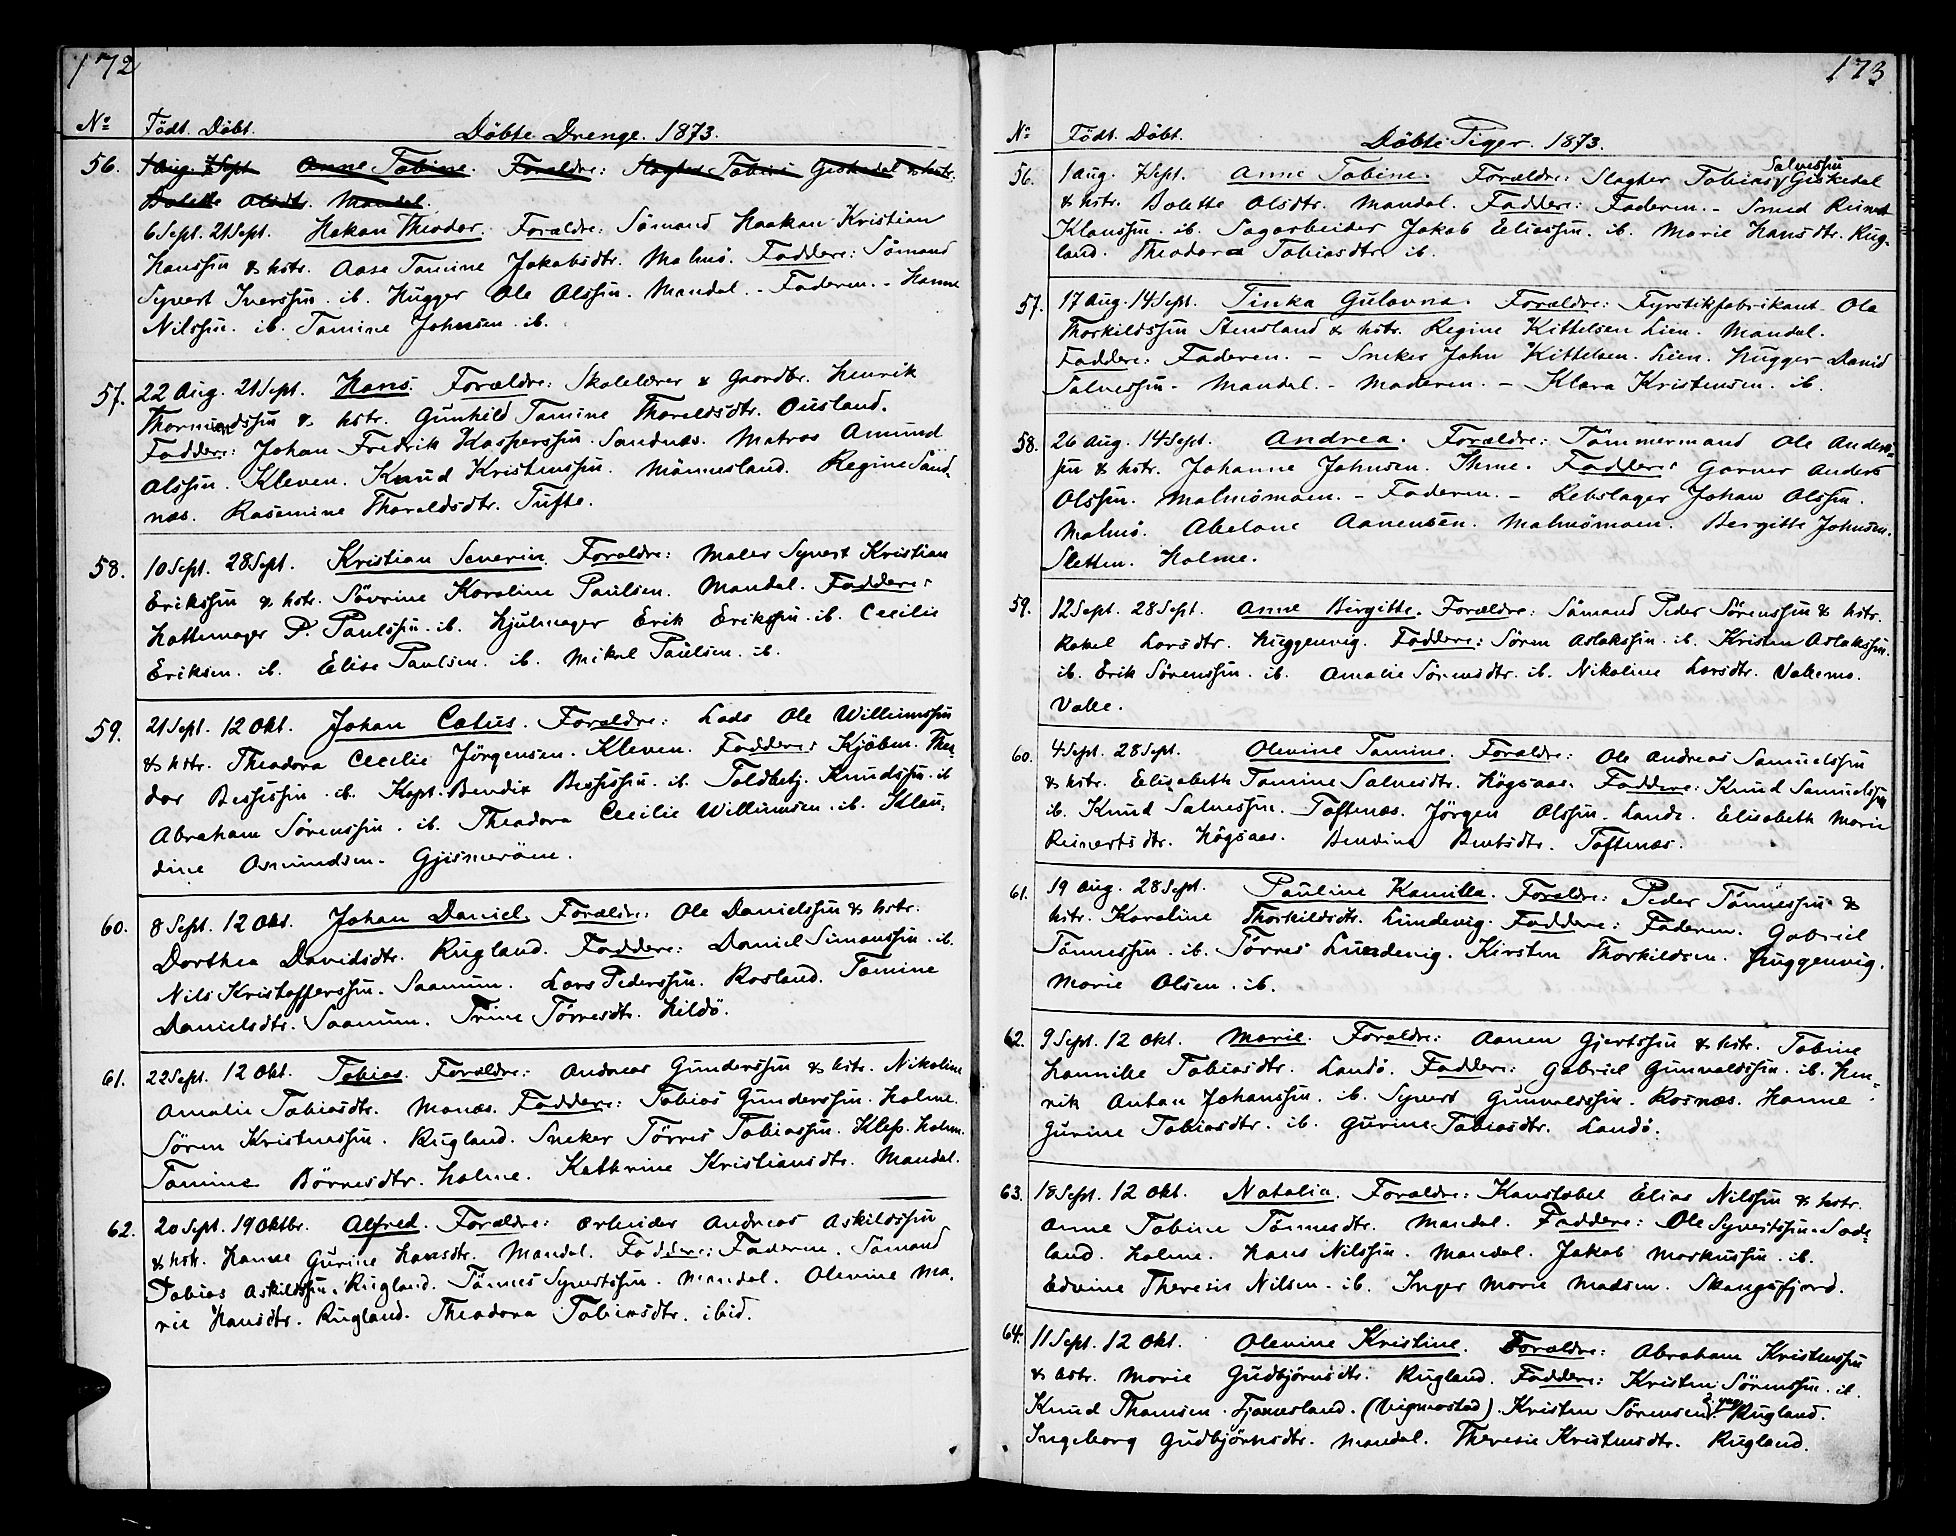 172
No Födt. Döbt. Döbte Drenge. 1873.
56. 1 Aug. 7 Sept. Anne Tobine. Forældre: Slagter Tobias Geskedal & hstr.
Bolette Olsdtr. Mandal.
6 Sept. 21 Sept. Hakon Theodor. Forældre: Sömand Haakon Kristian
Hanssen & hstr. Aase Tomine Jakobsdtr. Malmö. Faddere: Sömand
Syvert Iverssen. ib. Hugger Ole Olssen. Mandal. - Faderen. - Hanne
Nilssen. ib. Tomine Johnsen. ib.
57. 22 Aug. 21 Sept. Hans. Forældre: Skolelærer & Gaardbr. Henrik
Thormundssen & hstr. Gunhild Tomine Thoreldsdtr. Ousland.
Faddere: Johan Fredrik Kasperssen. Sandnæs. Matros Amund
Olssen. Kleven. Knud Kristenssen. Mönnesland. Regine Sand-
næs. Rasemine Thoreldsdtr. Tufte.
58. 10 Sept. 28 Sept. Kristian Severin. Forældre: Maler Syvert Kristian
Erikssen & hstr. Sövrine Karoline Paulsen. Mandal. Faddere:
Hattemager P. Paulssen. ib. Hjulmager Erik Erikssen. ib. Cecilie
Eriksen. ib. Elise Paulsen. ib. Mikal Paulsen. ib.
59. 21 Sept. 12 Okt. Johan Catus. Forældre: Lods Ole Williumssen
& hstr. Theodora Cecilie Jörgensen. Kleven. Faddere: Kjöbm. Theo-
dor Bessessen. ib. Kapt. Bendix Bessessen. ib. Toldbetj. Knudssen. ib
Abraham Sörenssen. ib. Theodora Cecilie Williumsen. ib. Klau-
dine Osmundsen. Gjismeröen.
60. 8 Sept. 12 Okt. Johan Daniel. Forældre: Ole Danielssen & hstr.
Dorthea Davidsdtr. Rugland. Faddere: Daniel Simonssen. ib.
Nils Kristofferssen. Saanum. Lars Pederssen. Rosland. Tomine
Danielsdtr. Saanum. Trine Törresdtr. Hildö.
61. 22 Sept. 12 Okt. Tobias. Forældre: Andreas Gunderssen & hstr. Nikoline
Amalie Tobiasdtr. Monæs. Faddere: Tobias Gunderssen. Holme.
Sören Kristenssen. Rugland. Sneker Törres Tobiassen. Klep. Holm.
Tomine Börresdtr. Holme. Kathrine Kristiansdtr. Mandal.
62. 20 Sept. 19 Oktbr. Alfred. Forældre: Arbeider Andreas Askildssen
& hstr. Hanne Gurine Hansdtr. Mandal. Faddere: Faderen. Sömand
Tobias Askildssen. Rugland. Tönnes Syvertssen. Mandal. Olevine Ma-
rie Hansdtr. Rugland. Theodora Tobiasdtr. ibid.
173
No Födt. Döbt. Döbte Piger. 1873.
56. 1 Aug. 7 Sept. Anne Tobine. Forældre: Slagter Tobias Salvessen Geskedal
& hstr. Bolette Olsdtr. Mandal. Faddere: Faderen. - Smed Reinert
Klaussen. ib. Sagarbeider Jakob Eliassen. ib. Marie Hansdtr. Rug-
land. Theodora Tobiasdtr. ib.
57. 17 Aug. 14 Sept. Tinka Gulovna. Forældre: Fyrstikfabrikant Ole
Thorkildssen Stensland & hstr. Regine Kittelsen Lien. Mandal.
Faddere: Faderen. - Sneker John Kittelsen. Lien. Hugger David
Salvessen. Mandal. - Moderen. - Klara Kristensen. ib.
58. 26 Aug. 14 Sept. Andrea. Forældre: Tömmermand Ole Anders-
sen & hstr. Johanne Johnsen. Ihme. Faddere: Garver Anders
Olssen. Malmömoen. - Faderen. - Rebslager Johan Olssen.
Malmö. Abelone Aanensen. Malmömoen. Bergitte Johnsen.
Sletten. Holme.
59. 12 Sept. 28 Sept. Anne Birgitte. Forældre: Sömand Peder Sörenssen & hstr.
Rakel Larsdtr. Huggenvig. Faddere: Sören Aslakssen. ib. Kristen Aslakssen.
ib. Erik Sörenssen. ib. Amalie Sörensdtr. ib. Nikoline Larsdtr. Vallemo.
Valle.
60. 4 Sept. 28 Sept. Olevine Tomine. Forældre: Ole Andreas Samuelssen
& hstr. Elisabeth Tomine Salvesdtr. Högsaas. Faddere: Knud Samuelssen
ib. Knud Salvessen. Toftenæs. Jörgen Olssen. Lande. Elisabeth Marie
Reinertsdtr. Högsaas. Bendine Berntsdtr. Toftenæs.
61. 19 Aug. 28 Sept. Pauline Kamilla. Forældre: Peder Tönnessen &
hstr. Karoline Thorkildsdtr. Lundevig. Faddere: Faderen. Gabriel
Tönnessen. ib. Törres Lundevig. Kirsten Thorkildsen. Huggenvig.
Marie Olsen. ib.
62. 9 Sept. 12 Okt. Marie. Forældre: Aanen Gjertssen & hstr. Tobine
Hannike Tobiasdtr. Landö. Faddere: Gabriel Gunvaldssen. ib. Hen-
rik Anton Johanssen. ib. Syvert Gunvaldssen. Rosnæs. Hanne
Gurine Tobiasdtr. ib. Gurine Tobiasdtr. Landö.
63. 18 Sept. 12 Okt. Natalia. Forældre: Konstabel Elias Nilssen & hstr.
Anne Tobine Tönnesdtr. Mandal. Faddere: Ole Syvertssen. Sode-
land. Holme. Hans Nilssen. Mandal. Jakob Markussen. ib.
Edvine Theresie Nilsen. ib. Inger Marie Madsen. Skongsfjord.
64. 11 Sept. 12 Okt. Olevine Kristine. Forældre: Abraham Kristenssen
& hstr. Marie Gudbjörnsdtr. Rugland. Faddere: Kristen Sörenssen. ib.
Knud Thomsen. Fjomesland. (Vigmostad). Kristen Sörensen Rugland.
Ingeborg Gudbjörnsdtr. Mandal. Theresie Kristensdtr. Rugland.